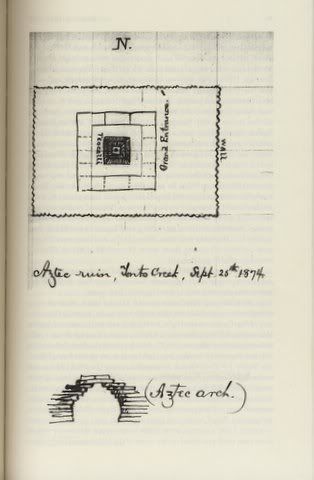 N.
Teocalli
Grand Entrance.
Wall
Aztec ruin, Tonto Creek, Sept. 25th 1874.
(Aztec arch.)